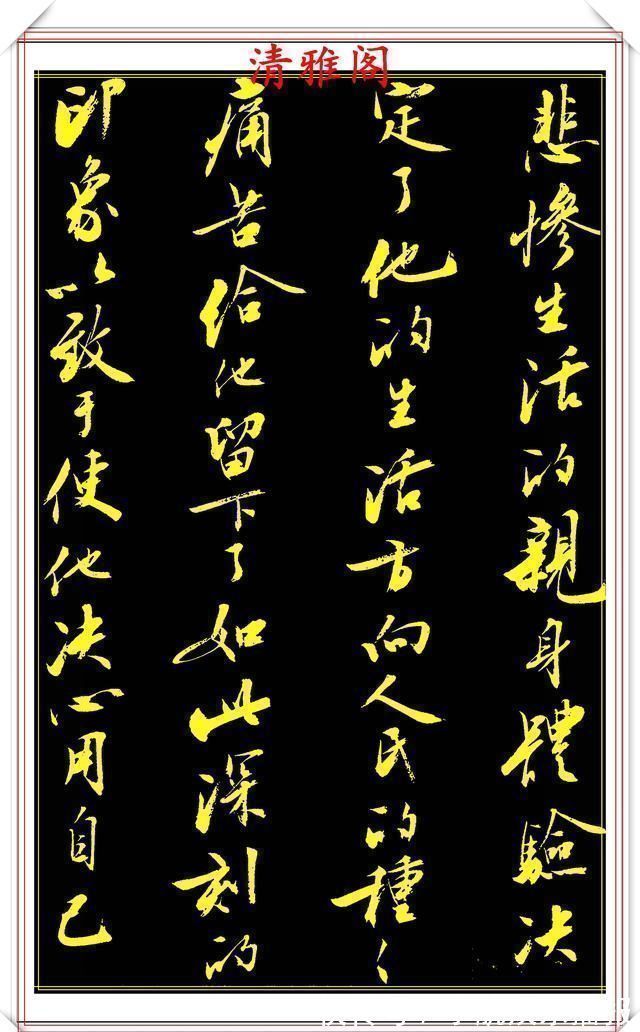 清雅阁
悲慘生活的親身體驗决
定了他的生活方向人民的種々
痛苦给他留下了如此深刻的
印象以致于使他决心用自己